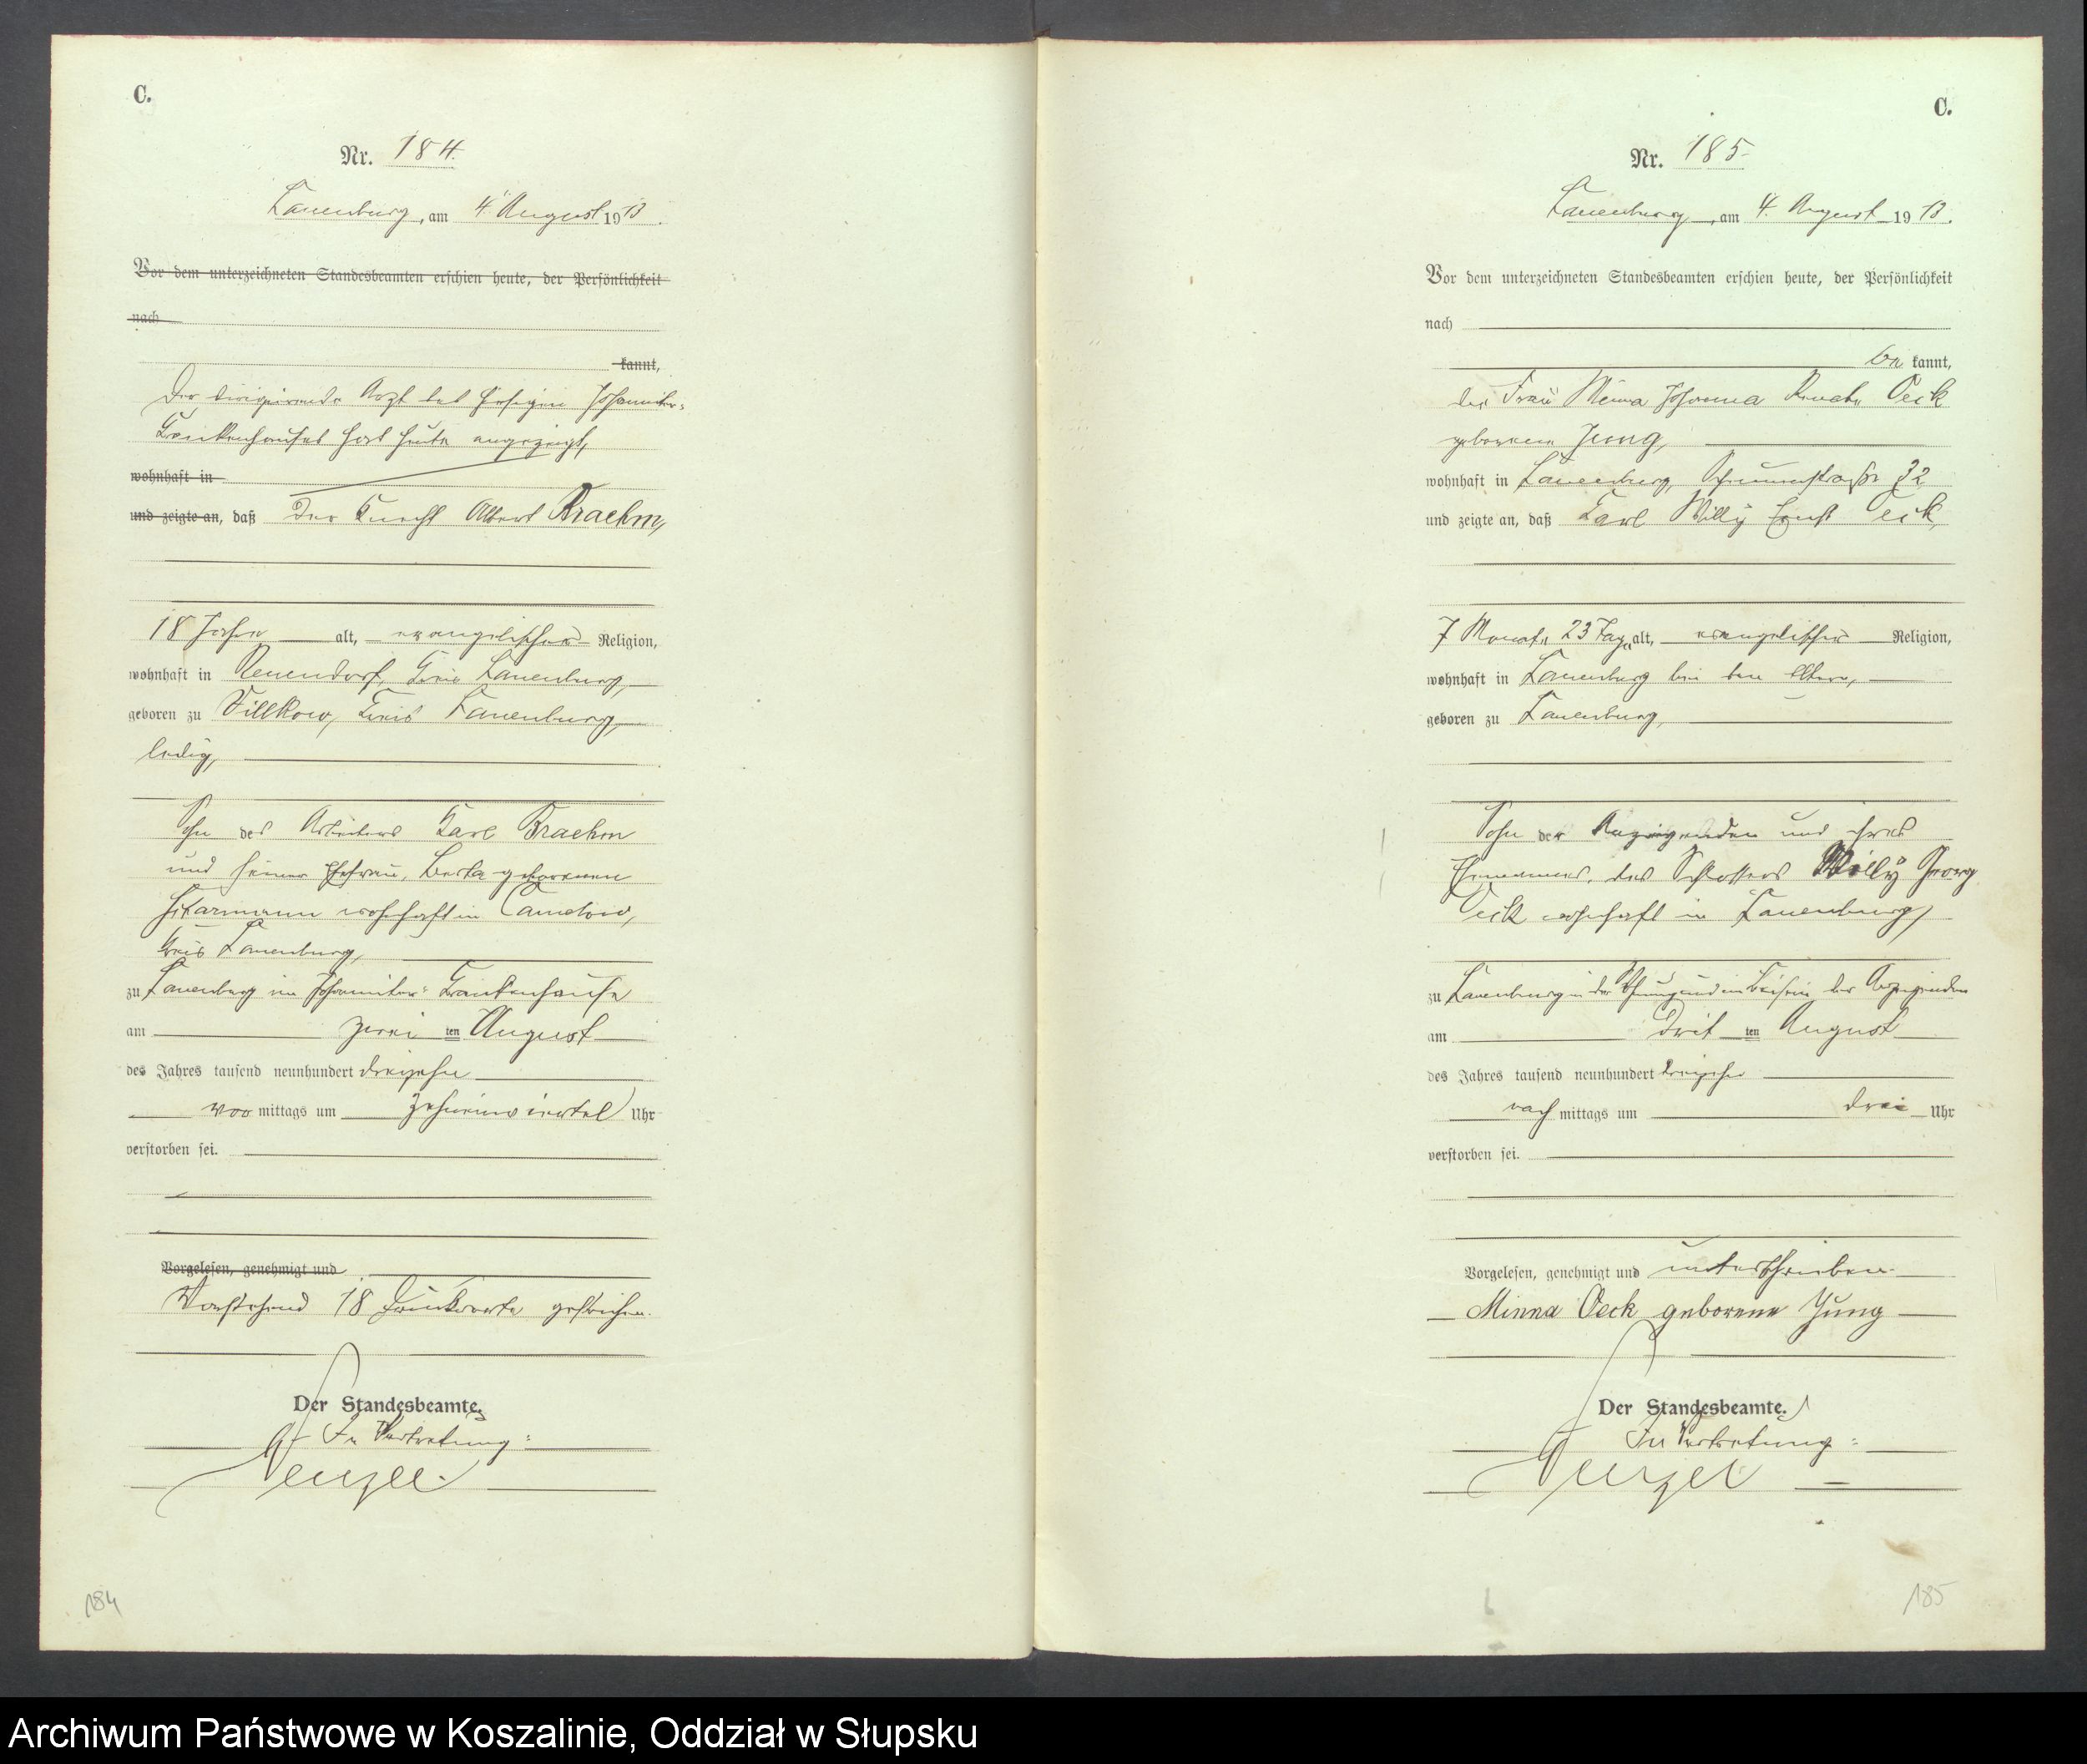 C.
Nr. 184.
Lauenburg, am 4. August 1913.
Vor dem unterzeichneten Standesbeamten erschien heute, der Persönlichkeit
nach
kannt,
Der dirigirende Arzt des hiesigen Johanniter-
Krankenhauses hat heute angezeigt,
wohnhaft in
und zeigte an, daß der Knecht Albert Braehm,
18 Jahre alt, evangelischer Religion,
wohnhaft in Neuendorf, Kreis Lauenburg,
geboren zu Villkow, Kreis Lauenburg,
ledig,
Sohn des Arbeiters Karl Braehm
und seiner Ehefrau, Berta geborenen
wohnhaft in
Kreis Lauenburg,
zu Lauenburg im Johanniter-Krankenhause
am zwei ten August
des Jahres tausend neunhundert dreizehn
vor mittags um zehneinviertel Uhr
verstorben sei.
Vorgelesen, genehmigt und
Vorstehend 18 Druckworte gestrichen.
Der Standesbeamte.
In Vertretung:
184
C.
Nr. 185
Lauenburg, am 4. August 1913.
Vor dem unterzeichneten Standesbeamten erschien heute, der Persönlichkeit
nach
be kannt,
die Frau Minna Johanna Renate Oeck
geborene Jung,
wohnhaft in Lauenburg, 32
und zeigte an, daß Karl Willy Ernst Oeck,
7 Monate 23 Tage alt, evangelischer Religion,
wohnhaft in Lauenburg bei den Eltern,
geboren zu Lauenburg,
Sohn der Anzeigenden und ihres
Ehemannes, des Schlossers Willy Georg
Oeck wohnhaft in Lauenburg,
zu Lauenburg in der Wohnung und im Beisein der Anzeigenden
am drit ten August
des Jahres tausend neunhundert dreizehn
nach mittags um drei Uhr
verstorben sei.
Vorgelesen, genehmigt und unterschrieben.
Minna Oeck geborene Jung
Der Standesbeamte.
In Vertretung:
185
Archiwum Państwowe w Koszalinie, Oddział w Słupsku